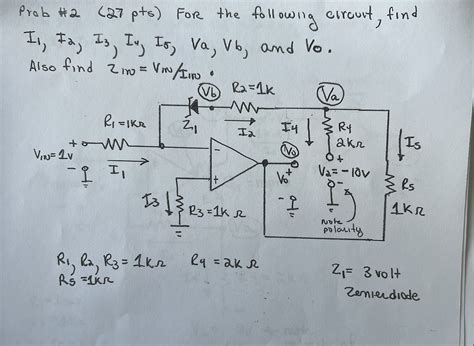 Prob #2 (27 pts) For the following circuit, find
I1, I2, I3, I4, I5, Va, Vb, and Vo.
Also find ZIN = VIN/IIN.
Vb
R2=1K
Va
R1=1KΩ
Z1
I2
I4
R4
2KΩ
I5
VIN=1v
+
-
I1
-
+
Vo
Vo
+
-
+
V2=-10v
-
R5
1KΩ
I3
R3=1KΩ
note
polarity
R1, R2, R3 = 1KΩ R4 = 2KΩ
R5 = 1KΩ
Z1= 3 volt
Zenier diode